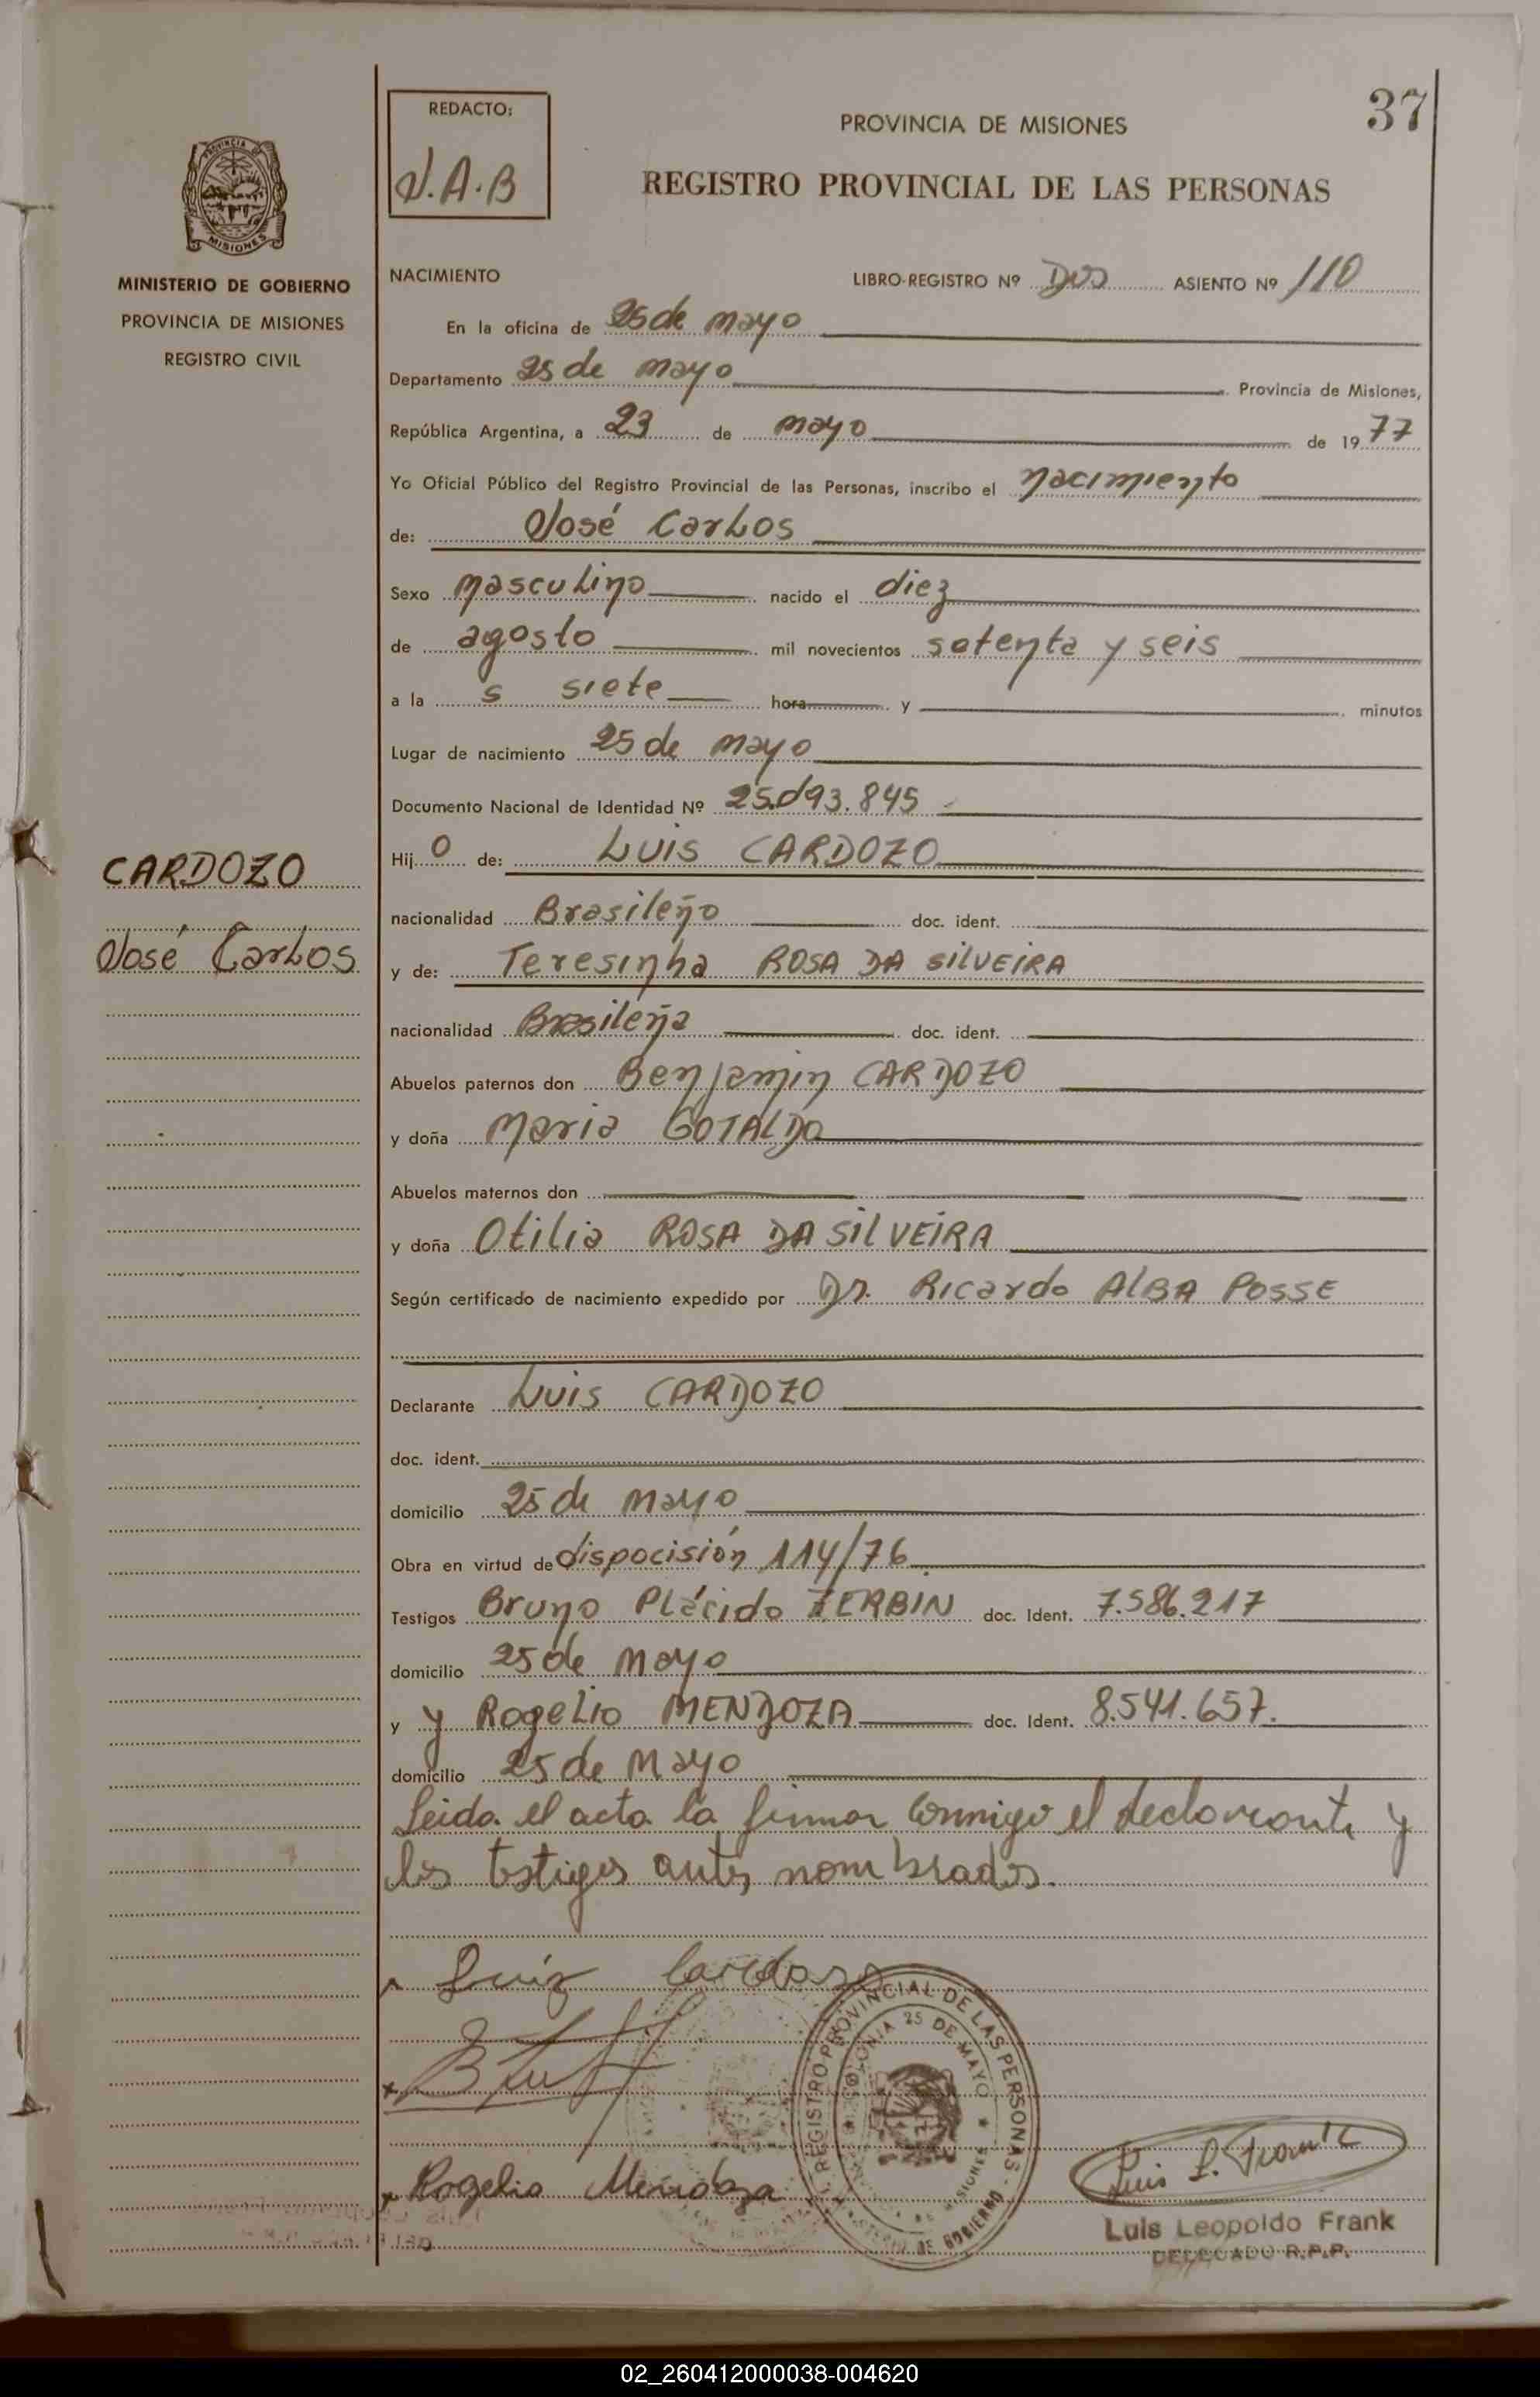 37
REDACTO:
J.A.B
PROVINCIA DE MISIONES
REGISTRO PROVINCIAL DE LAS PERSONAS
PROVINCIA DE
MISIONES
MINISTERIO DE GOBIERNO
PROVINCIA DE MISIONES
REGISTRO CIVIL
NACIMIENTO LIBRO-REGISTRO Nº DOS ASIENTO Nº 110
En la oficina de 25 de mayo
Departamento 25 de mayo Provincia de Misiones,
República Argentina, a 23 de mayo de 1977
Yo Oficial Público del Registro Provincial de las Personas, inscribo el nacimiento
de: José Carlos
Sexo masculino nacido el diez
de agosto mil novecientos setenta y seis
a la s siete hora y minutos
Lugar de nacimiento 25 de mayo
Documento Nacional de Identidad Nº 25.093.845
CARDOZO
José Carlos
Hij o de: LUIS CARDOZO
nacionalidad Brasileño doc. ident.
y de: Teresinha ROSA DA SILVEIRA
nacionalidad Brasileña doc. ident.
Abuelos paternos don Benjamin CARDOZO
y doña Maria GOTALDO
Abuelos maternos don
y doña Otilia ROSA DA SILVEIRA
Según certificado de nacimiento expedido por Dr. Ricardo ALBA POSSE
Declarante LUIS CARDOZO
doc. ident.
domicilio 25 de mayo
Obra en virtud de dispocisión 114/76
Testigos Bruno Plácido ZERBIN doc. Ident. 7.586.217
domicilio 25 de mayo
y y Rogelio MENDOZA doc. Ident. 8.541.657.
domicilio 25 de Mayo
Leida el acta la firman conmigo el declarante y
los testigos antes nombrados.
Luiz Cardozo
REGISTRO PROVINCIAL DE LAS PERSONAS
COLONIA 25 DE MAYO
MISIONES
MINISTERIO DE GOBIERNO
Rogelio Mendoza
Luis L. Frank
Luis Leopoldo Frank
DELEGADO R.P.P.
02_260412000038-004620